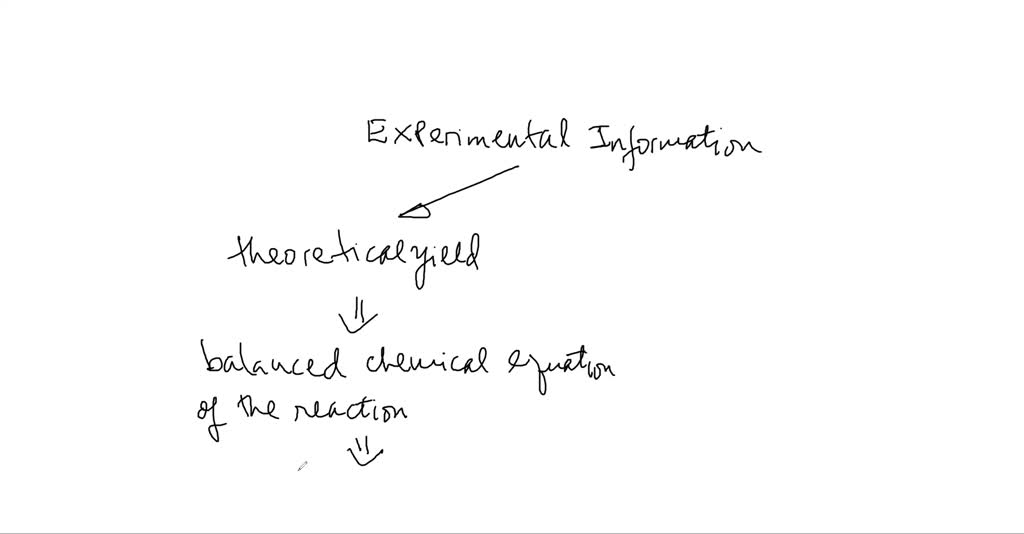 Experimental Information
theoretical yield
balanced chemical equation
of the reaction